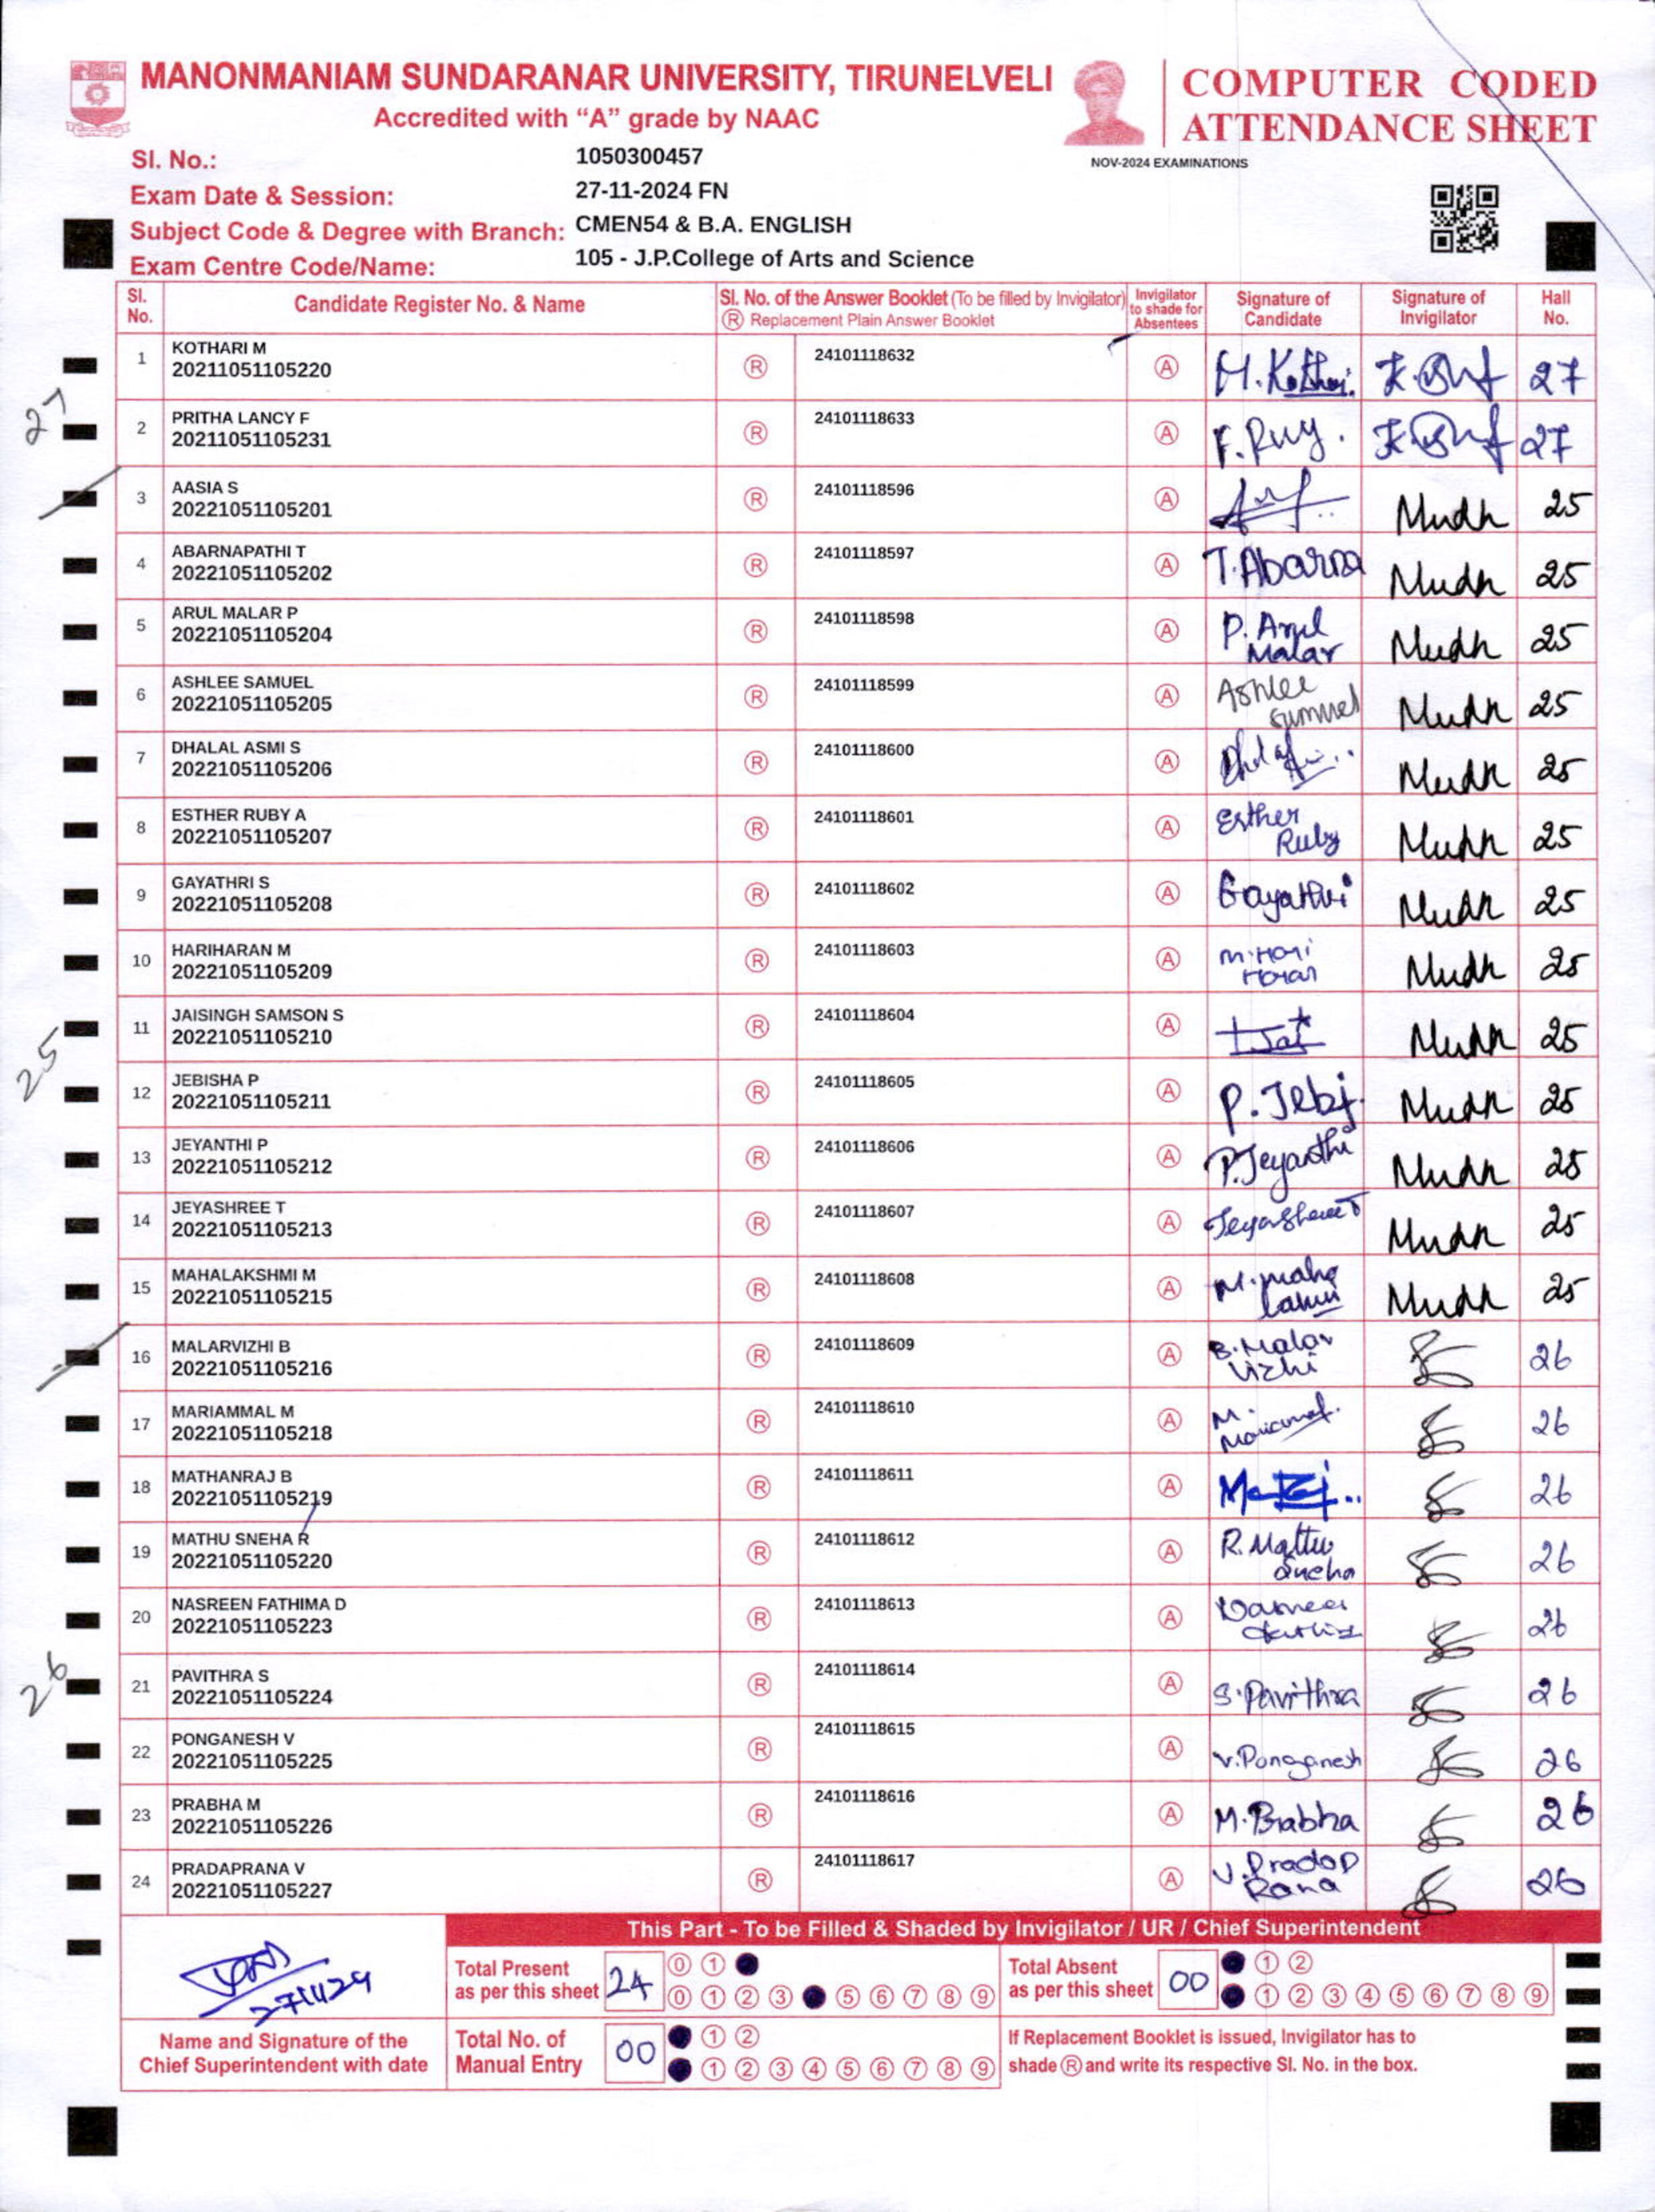 MANONMANIAM SUNDARANAR UNIVERSITY, TIRUNELVELI
Accredited with “A” grade by NAAC
COMPUTER CODED
ATTENDANCE SHEET
NOV-2024 EXAMINATIONS
Sl. No.: 1050300457
Exam Date & Session: 27-11-2024 FN
Subject Code & Degree with Branch: CMEN54 & B.A. ENGLISH
Exam Centre Code/Name: 105 - J.P.College of Arts and Science
Sl. No. Candidate Register No. & Name Sl. No. of the Answer Booklet (To be filled by Invigilator) Ⓡ Replacement Plain Answer Booklet Invigilator to shade for Absentees Signature of Candidate Signature of Invigilator Hall No.
1 KOTHARI M 20211051105220 Ⓡ 24101118632 Ⓐ M.Kothari 27
27
2 PRITHA LANCY F 20211051105231 Ⓡ 24101118633 Ⓐ 27
3 AASIA S 20221051105201 Ⓡ 24101118596 Ⓐ 25
4 ABARNAPATHI T 20221051105202 Ⓡ 24101118597 Ⓐ T.Abarna 25
5 ARUL MALAR P 20221051105204 Ⓡ 24101118598 Ⓐ P. Arul Malar 25
6 ASHLEE SAMUEL 20221051105205 Ⓡ 24101118599 Ⓐ Ashlee 25
7 DHALAL ASMI S 20221051105206 Ⓡ 24101118600 Ⓐ 25
8 ESTHER RUBY A 20221051105207 Ⓡ 24101118601 Ⓐ Esther Ruby 25
9 GAYATHRI S 20221051105208 Ⓡ 24101118602 Ⓐ Gayathri 25
10 HARIHARAN M 20221051105209 Ⓡ 24101118603 Ⓐ M.Hari Haran 25
11 JAISINGH SAMSON S 20221051105210 Ⓡ 24101118604 Ⓐ 25
25
12 JEBISHA P 20221051105211 Ⓡ 24101118605 Ⓐ P. Jebi 25
13 JEYANTHI P 20221051105212 Ⓡ 24101118606 Ⓐ P.Jeyanthi 25
14 JEYASHREE T 20221051105213 Ⓡ 24101118607 Ⓐ 25
15 MAHALAKSHMI M 20221051105215 Ⓡ 24101118608 Ⓐ M.maha 25
16 MALARVIZHI B 20221051105216 Ⓡ 24101118609 Ⓐ B.Malar Vizhi 26
17 MARIAMMAL M 20221051105218 Ⓡ 24101118610 Ⓐ M. 26
18 MATHANRAJ B 20221051105219 Ⓡ 24101118611 Ⓐ 26
19 MATHU SNEHA R 20221051105220 Ⓡ 24101118612 Ⓐ R. Mathu Sneha 26
20 NASREEN FATHIMA D 20221051105223 Ⓡ 24101118613 Ⓐ 26
26
21 PAVITHRA S 20221051105224 Ⓡ 24101118614 Ⓐ S.Pavithra 26
22 PONGANESH V 20221051105225 Ⓡ 24101118615 Ⓐ V.Ponganesh 26
23 PRABHA M 20221051105226 Ⓡ 24101118616 Ⓐ M.Prabha 26
24 PRADAPRANA V 20221051105227 Ⓡ 24101118617 Ⓐ V.Pradap Rana 26
This Part - To be Filled & Shaded by Invigilator / UR / Chief Superintendent
27/11/24
Name and Signature of the
Chief Superintendent with date
Total Present as per this sheet 24
0 1
0 1 2 3 5 6 7 8 9
Total Absent as per this sheet 00
1 2
1 2 3 4 5 6 7 8 9
Total No. of Manual Entry 00
1 2
1 2 3 4 5 6 7 8 9
If Replacement Booklet is issued, Invigilator has to
shade Ⓡ and write its respective Sl. No. in the box.